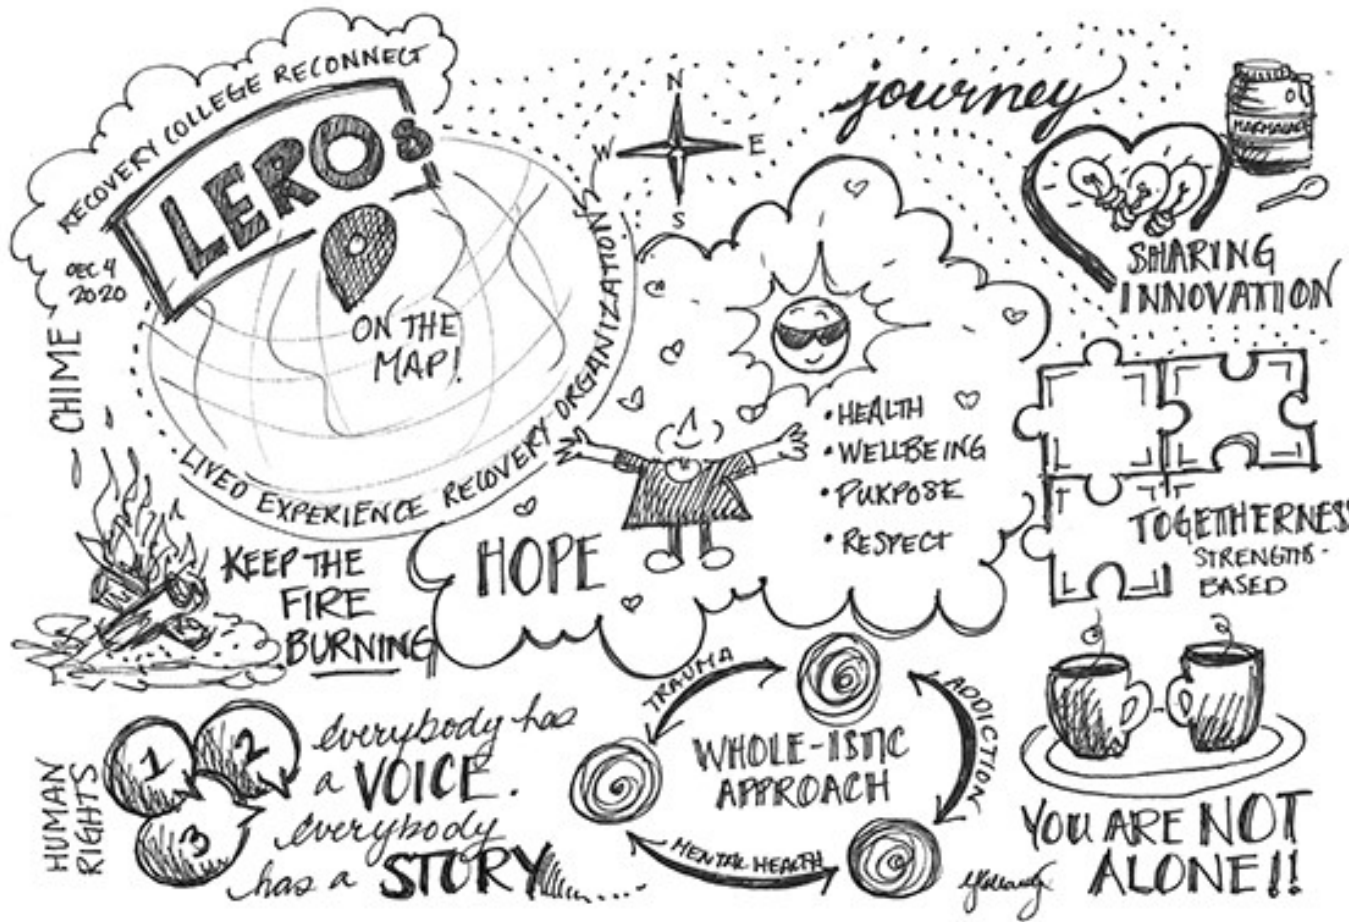 RECOVERY COLLEGE RECONNECT
LEROs
DEC 4
2020
ON THE
MAP!
LIVED EXPERIENCE RECOVERY ORGANIZATIONS
CHIME
N
W
E
S
journey
MARMALADE
SHARING
INNOVATION
• HEALTH
• WELLBEING
• PURPOSE
• RESPECT
HOPE
TOGETHERNESS
STRENGTHS-
BASED
KEEP THE
FIRE
BURNING
HUMAN
RIGHTS
1
2
3
everybody has
a VOICE.
everybody
has a STORY
TRAUMA
ADDICTION
MENTAL HEALTH
WHOLE-ISTIC
APPROACH
YOU ARE NOT
ALONE!!